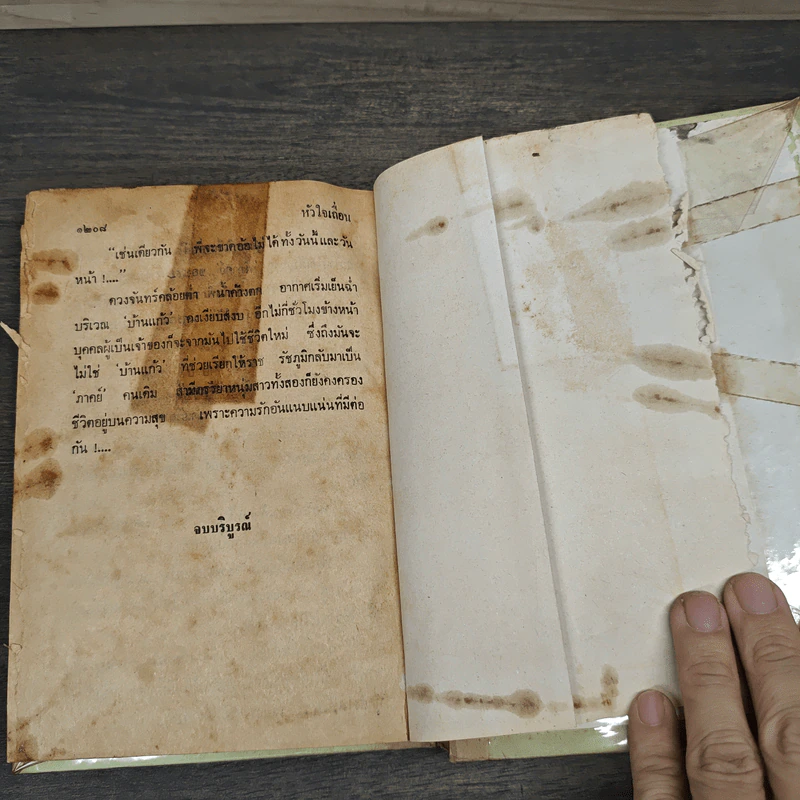 ๑๒๐๘
หัวใจเถื่อน
“เช่นเดียวกัน พี่จะขาดอ้อยไม่ได้ ทั้งวันนี้และวัน
หน้า !....”
ดวงจันทร์คล้อยต่ำ น้ำค้างตก อากาศเริ่มเย็นฉ่ำ
บริเวณ ‘บ้านแก้ว’ คงเงียบสงบ อีกไม่กี่ชั่วโมงข้างหน้า
บุคคลผู้เป็นเจ้าของก็จะจากมันไปใช้ชีวิตใหม่ ซึ่งถึงมันจะ
ไม่ใช่ ‘บ้านแก้ว’ ที่ช่วยเรียกให้ราช รัชภูมิกลับมาเป็น
‘ภาคย์’ คนเดิม สามีภรรยาหนุ่มสาวทั้งสองก็ยังคงครอง
ชีวิตอยู่บนความสุข เพราะความรักอันแนบแน่นที่มีต่อ
กัน !....
จบบริบูรณ์